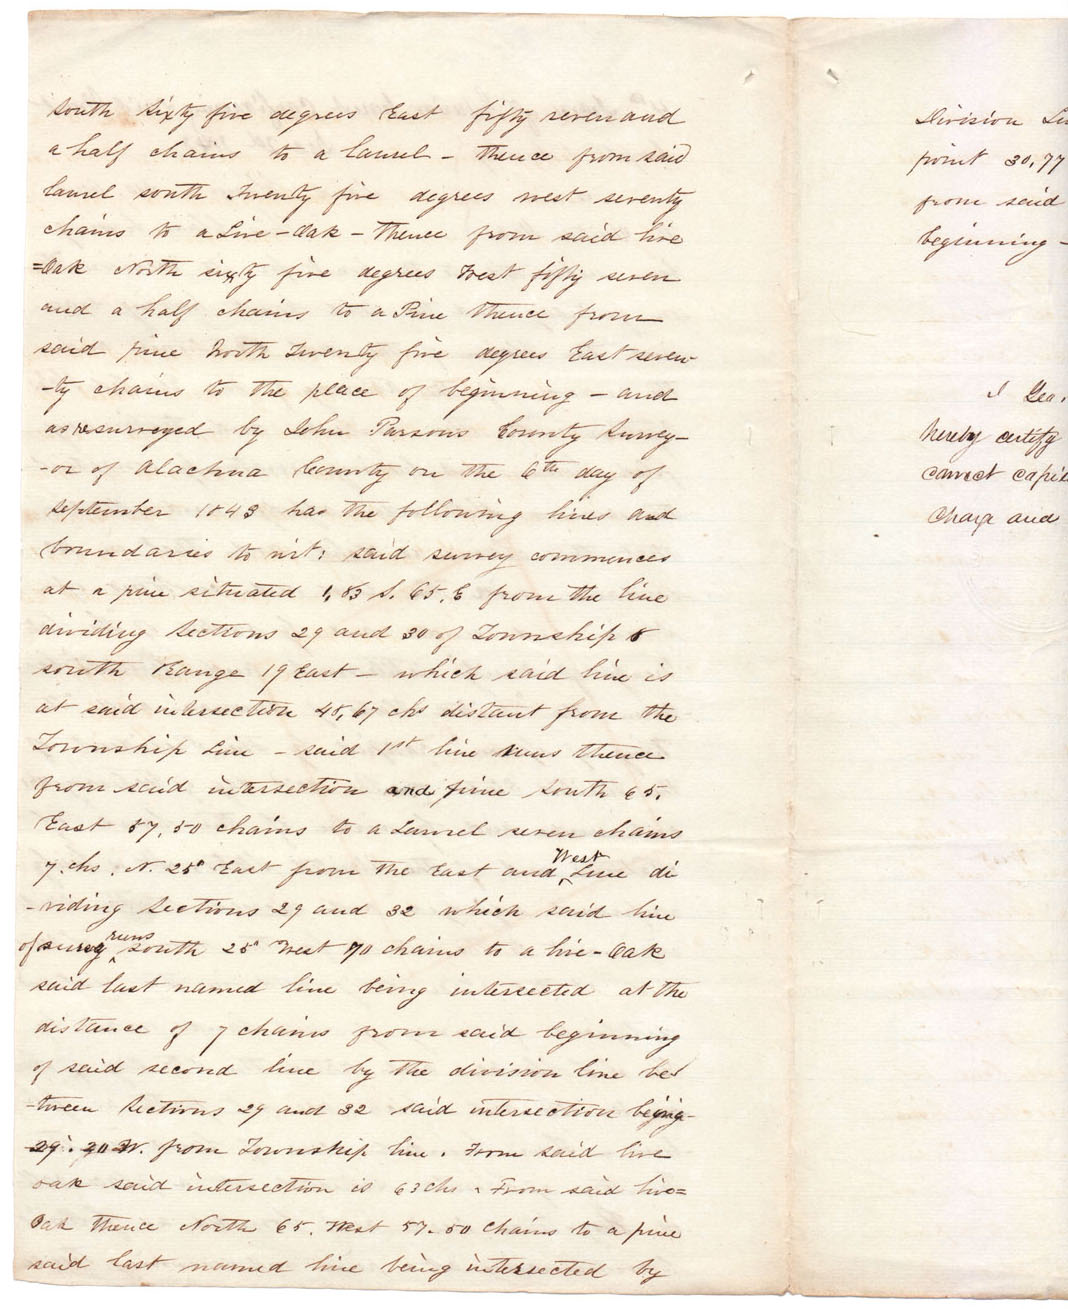 South Sixty five degrees East fifty seven and
a half chains to a laurel - thence from said
laurel south Twenty five degrees west seventy
chains to a Live-Oak - thence from said live
=Oak North sixty five degrees West fifty seven
and a half chains to a Pine thence from
said pine North Twenty five degrees East seven-
-ty chains to the place of beginning - and
as resurveyed by John Parsons County Survey-
-or of Alachua County on the 6th day of
September 1843 has the following lines and
boundaries to wit: said survey commences
at a pine situated 1,83 S. 65, E from the line
dividing Sections 29 and 30 of Township 8
south Range 19 East - which said line is
at said intersection 48,67 chs distant from the
Township Line - said 1st line runs thence
from said intersection and pine South 65.
East 57,50 chains to a Laurel seven chains
7. chs. N. 25° East from the East and West Line di
-viding Sections 29 and 32 which said line
of survey runs South 25° West 70 chains to a live-Oak
said last named line being intersected at the
distance of 7 chains from said beginning
of said second line by the division line be
-tween Sections 29 and 32 said intersection being
W. from Township line. From said live
oak said intersection is 63 chs. From said live=
Oak thence North 65. West 57.50 Chains to a pine
said last named line being intersected by
Division
point 30,77
from said
beginning -
I Geo.
hereby certify
correct
charge and